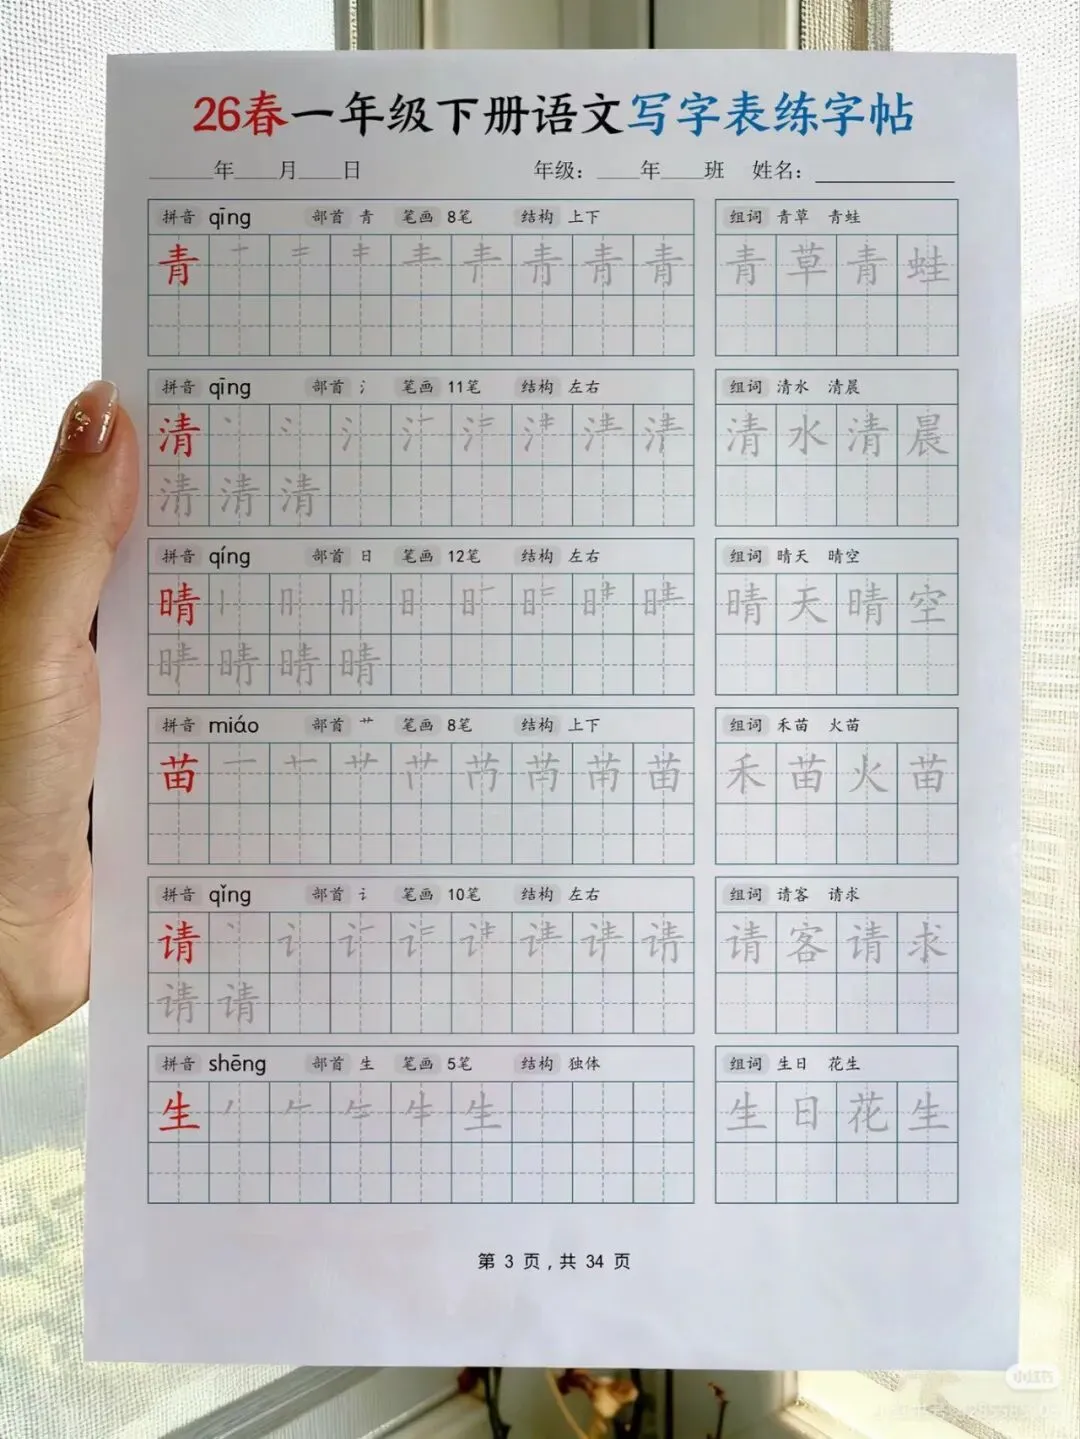 26春一年级下册语文写字表练字帖
______年____月____日 年级：____年____班 姓名：____________
拼音 qīng 部首 青 笔画 8笔 结构 上下
组词 青草 青蛙
青 青 青 青
青 草 青 蛙
拼音 qīng 部首 氵 笔画 11笔 结构 左右
组词 清水 清晨
清
清 水 清 晨
清 清 清
拼音 qíng 部首 日 笔画 12笔 结构 左右
组词 晴天 晴空
晴
晴 天 晴 空
晴 晴 晴
拼音 miáo 部首 艹 笔画 8笔 结构 上下
组词 禾苗 火苗
苗 苗
禾 苗 火 苗
拼音 qǐng 部首 讠 笔画 10笔 结构 左右
组词 请客 请求
请
请 客 请 求
请 请
拼音 shēng 部首 生 笔画 5笔 结构 独体
组词 生日 花生
生 生
生 日 花 生
第 3 页，共 34 页
小红书